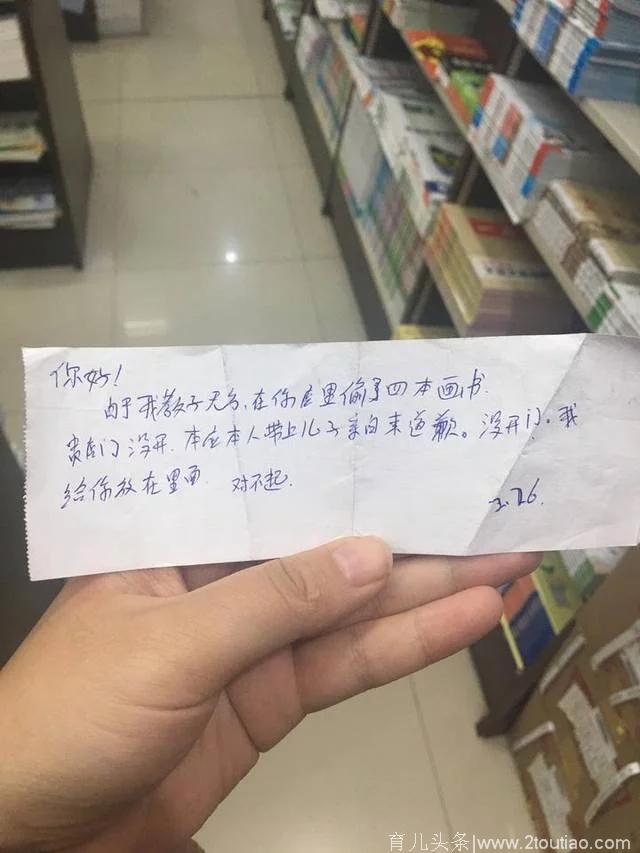 你好!
由于我教子无方,在你店里偷了四本画书.
贵店门没开.本应本人带上儿子亲自来道歉。没开门.我
给你放在里面. 对不起.
2.26.
育儿头条|www.2toutiao.com